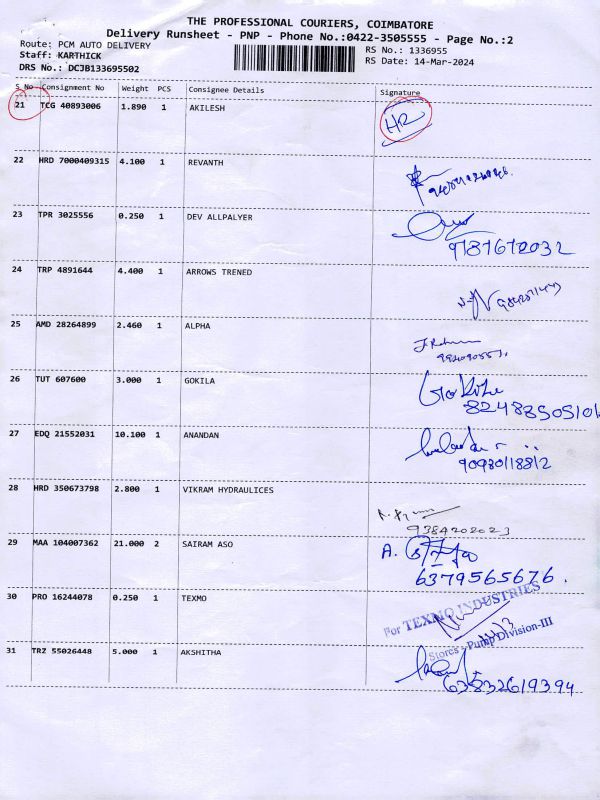 THE PROFESSIONAL COURIERS, COIMBATORE
Delivery Runsheet - PNP - Phone No.:0422-3505555 - Page No.:2
Route: PCM AUTO DELIVERY
RS No.: 1336955
Staff: KARTHICK
RS Date: 14-Mar-2024
DRS No.: DCJB133695502
S.No Consignment No Weight PCS Consignee Details Signature
21 TCG 40893006 1.890 1 AKILESH
HR
22 HRD 7000409315 4.100 1 REVANTH
23 TPR 3025556 0.250 1 DEV ALLPALYER
9787672032
24 TRP 4891644 4.400 1 ARROWS TRENED
25 AMD 28264899 2.460 1 ALPHA
26 TUT 607600 3.000 1 GOKILA
27 EDQ 21552031 10.100 1 ANANDAN
9093011882
28 HRD 350673798 2.800 1 VIKRAM HYDRAULICES
9384202023
29 MAA 104007362 21.000 2 SAIRAM ASO
A.
6379565676.
30 PRO 16244078 0.250 1 TEXMO
For TEXMO INDUSTRIES
Stores - Pump Division-III
31 TRZ 55026448 5.000 1 AKSHITHA
63832619394